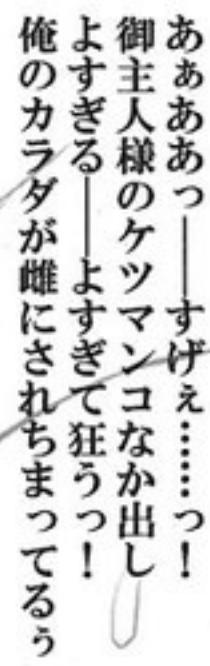 あぁああっ――すげぇ……っ！
御主人様のケツマンコなか出し
よすぎる――よすぎて狂うっ！
俺のカラダが雌にされちまってるぅ